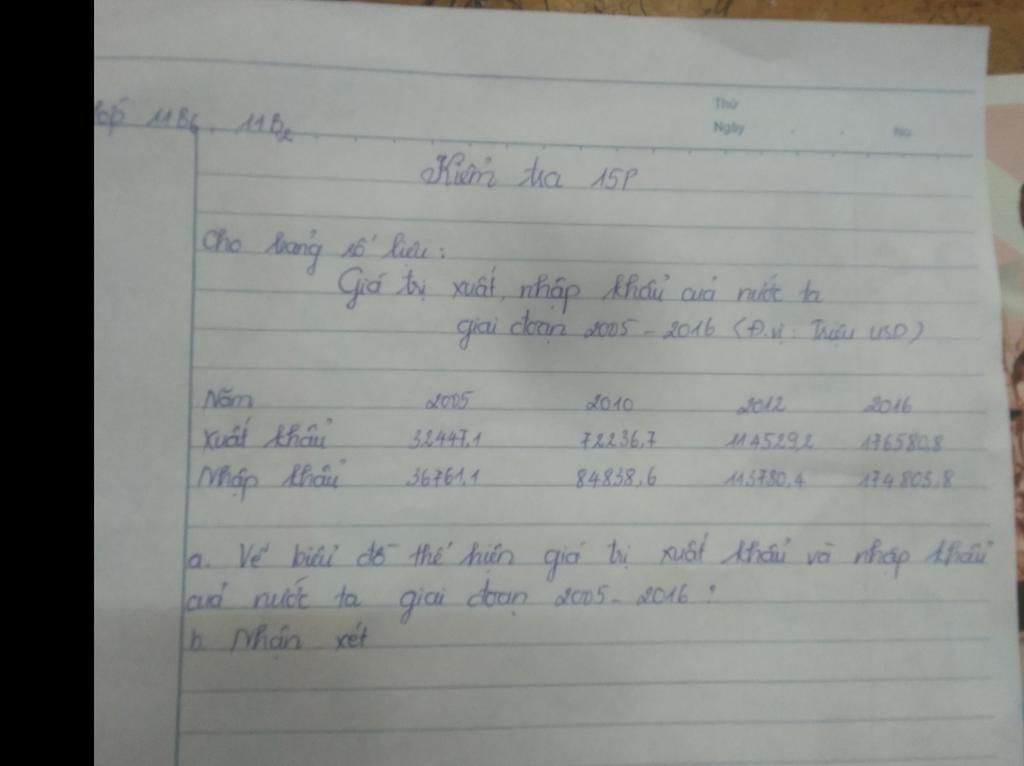 Lớp 11B6, 11B2
Thứ
Ngày
No
Kiểm tra 15P
Cho bảng số liệu:
Giá trị xuất, nhập khẩu của nước ta
giai đoạn 2005-2016 (Đ.vị: Triệu USD)
Năm 2005 2010 2012 2016
Xuất khẩu 32447,1 72236,7 114529,2 176580,8
Nhập khẩu 36761,1 84838,6 113780,4 174803,8
a. Vẽ biểu đồ thể hiện giá trị xuất khẩu và nhập khẩu
của nước ta giai đoạn 2005-2016?
b. Nhận xét